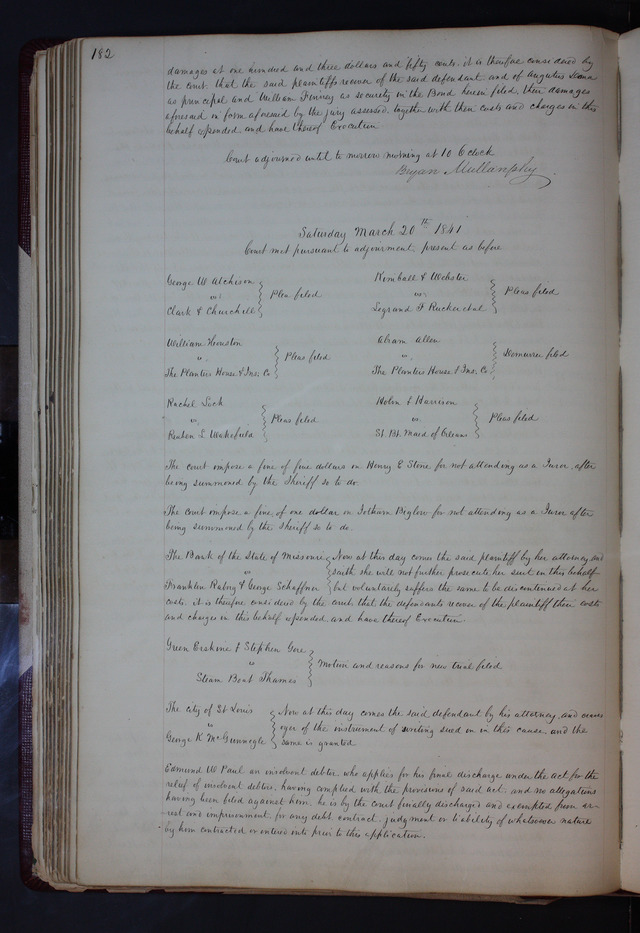 182
damages at one hundred and three dollars and fifty cents. it is therefore considered by
the court that the said plaintiffs recover of the said defendant and of Augustus
as principal and William Finney as security in the Bond herein filed, their damages
aforesaid in form aforesaid by the jury assessed, together with their costs and charges in this
behalf expended and have thereof Execution
Court adjourned until to morrow morning at 10 O clock
Bryan Mullanphy
Saturday March 20th 1841
Court met pursuant to adjournment, present as before
George W Atchison
vs
Clark & Churchill
Plea filed
Kimball & Webster
vs
Legrand F Rucker et al
Pleas filed
William Houston
vs
The Planters House & Ins; Co
Pleas filed
Abram Allen
vs
The Planters House & Ins; Co
Demurrer filed
Rachel Sock
vs
Reuben S Wakefield
Pleas filed
& Harrison
vs
St. Bt. Maid of Orleans
Pleas filed
The court impose a fine of five dollars on Henry E Stone for not attending as a Juror, after
being summoned by the Sheriff so to do.
The court impose a fine of one dollar on Biglow for not attending as a Juror after
being summoned by the Sheriff so to do
The Bank of the State of Missouri
vs
Franklin Raborg & George Schaffner
Now at this day comes the said plaintiff by her attorney, and
saith she will not further prosecute her suit in this behalf
but voluntarily suffers the same to be discontinued at her
costs. it is therefore considered by the court that the defendants recover of the plaintiff their costs
and charges in this behalf expended, and have thereof Execution.
Green Erskine & Stephen Gore
vs
Steam Boat Thames
Motion and reasons for new trial filed
The city of St Louis
vs
George K McGunnegle
Now at this day comes the said defendant by his attorney, and craves
oyer of the instrument of writing sued on in this cause, and the
same is granted
Edmund W Paul an insolvent debtor who applies for his final discharge under the act for the
relief of insolvent debtors, having complied with the provisions of said act, and no allegations
having been filed against him, he is by the court finally discharged and exempted from ar-
rest and imprisonment for any debt, contract, judgment or liability of whatsoever nature
by him contracted or entered into prior to this application.